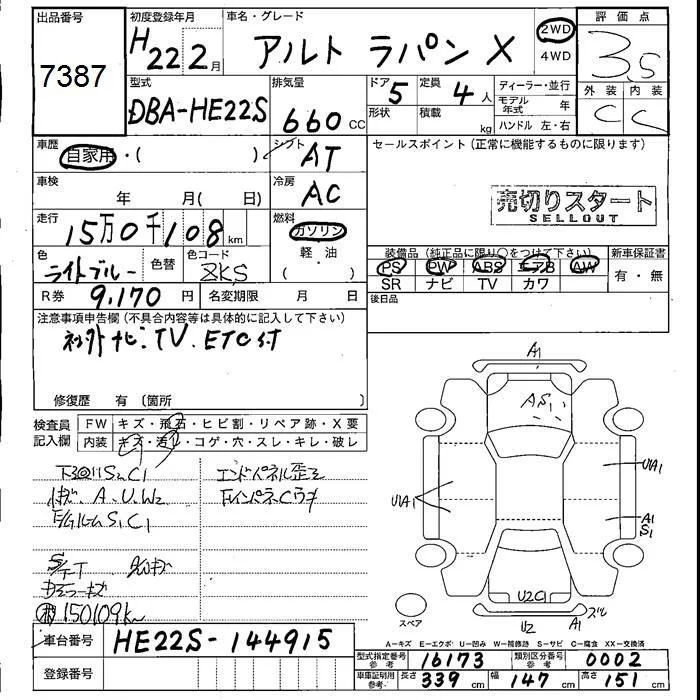 出品番号
7387
初度登録年月
H22 2月
車名・グレード
アルト ラパン X
2WD
4WD
評価点
3.5
外装 内装
C C
型式
DBA-HE22S
排気量
660 CC
ドア 5
形状
定員 4 人
積載 kg
ディーラー・並行
モデル年式 年
ハンドル 左・右
車歴
自家用・( )
シフト
AT
セールスポイント(正常に機能するものに限ります)
売切りスタート
SELLOUT
車検
年 月( 日)
冷房
AC
走行
15万0千108 km
燃料
ガソリン
軽・油
( )
色
ライトブルー
色替
色コード
ZKS
装備品(純正品に限り○をつけて下さい)
PS PW ABS エアB AW
SR ナビ TV カワ
新車保証書
有・無
R券 9,170 円
名変期限 月 日
後日品
注意事項申告欄(不具合内容等は具体的に記入して下さい)
社外ナビ・TV. ETC付
修復歴 有〔箇所 〕
検査員記入欄
FW キズ・飛石・ヒビ割・リペア跡・X要
内装 キズ・汚レ・コゲ・穴・スレ・キレ・破レ
S1C1
A.U.W2
S1C1
エンドパネル歪ミ
150109km
A1
AS1
U1A1
U1A1
A1
S1
U2C1
U2
A1
スペア
A=キズ E=エクボ U=凹み W=補修跡 S=サビ C=腐食 XX=交換済
車台番号 HE22S-144915
登録番号
型式指定番号参考 16173
類別区分番号参考 0002
車庫証明用参考 長さ 339 cm 幅 147 cm 高さ 151 cm